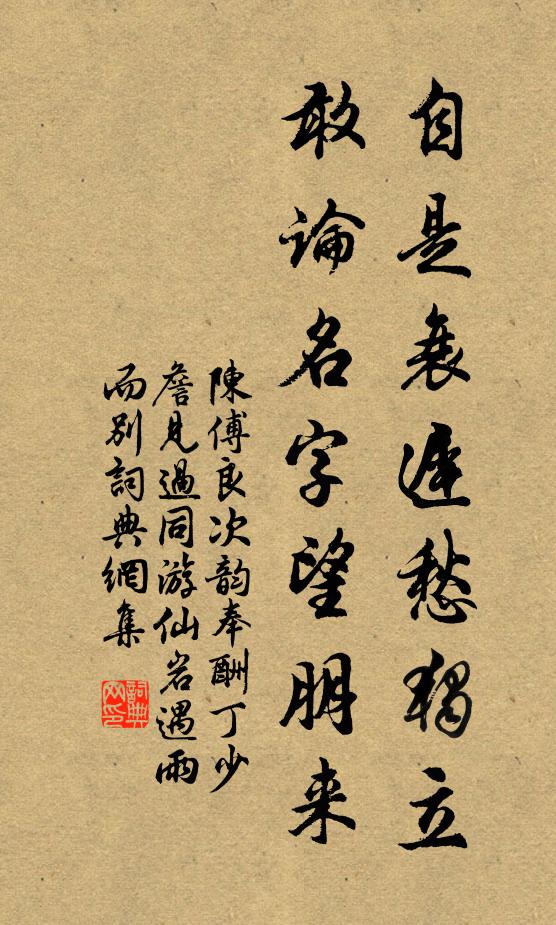 自是衰遲愁獨立
敢論名字望朋来
陳傅良次韵奉酬丁少
詹見過同游仙岩遇雨
而别詞典網集
詞典
网印